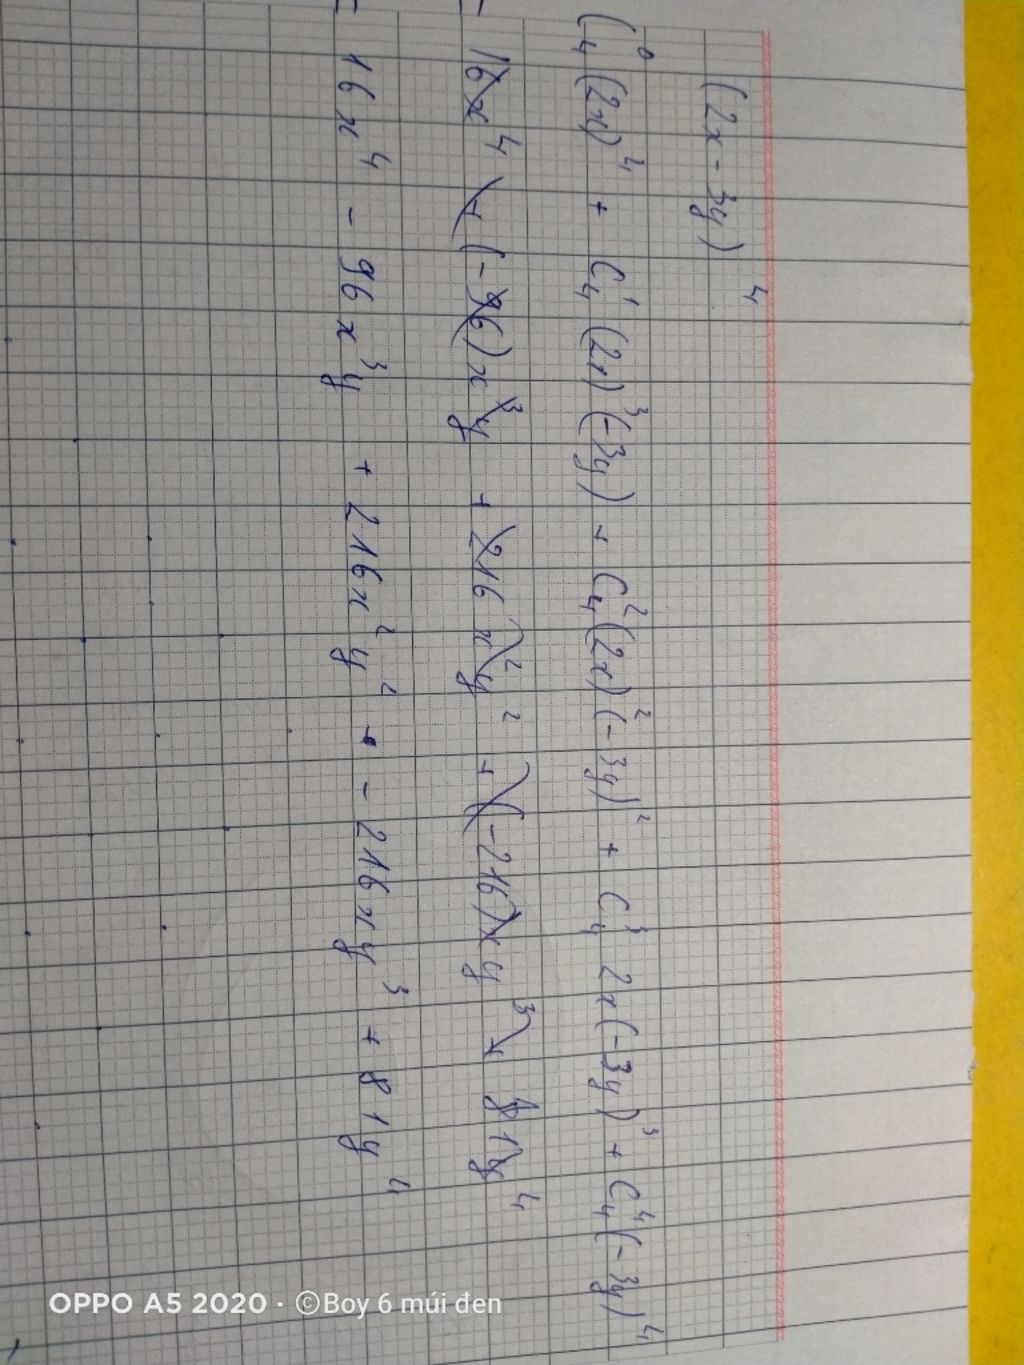 (2x - 3y)⁴
C₄⁰(2x)⁴ + C₄¹(2x)³(-3y) + C₄²(2x)²(-3y)² + C₄³ 2x(-3y)³ + C₄⁴(-3y)⁴
= 16x⁴ + (-96)x³y + 216x²y² + (-216)xy³ + 81y⁴
= 16x⁴ - 96x³y + 216x²y² - 216xy³ + 81y⁴
OPPO A5 2020 · ©Boy 6 múi đen